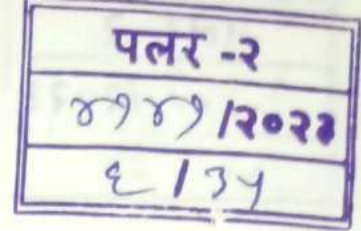 पलर -२
४१४१/२०२३
६/३५